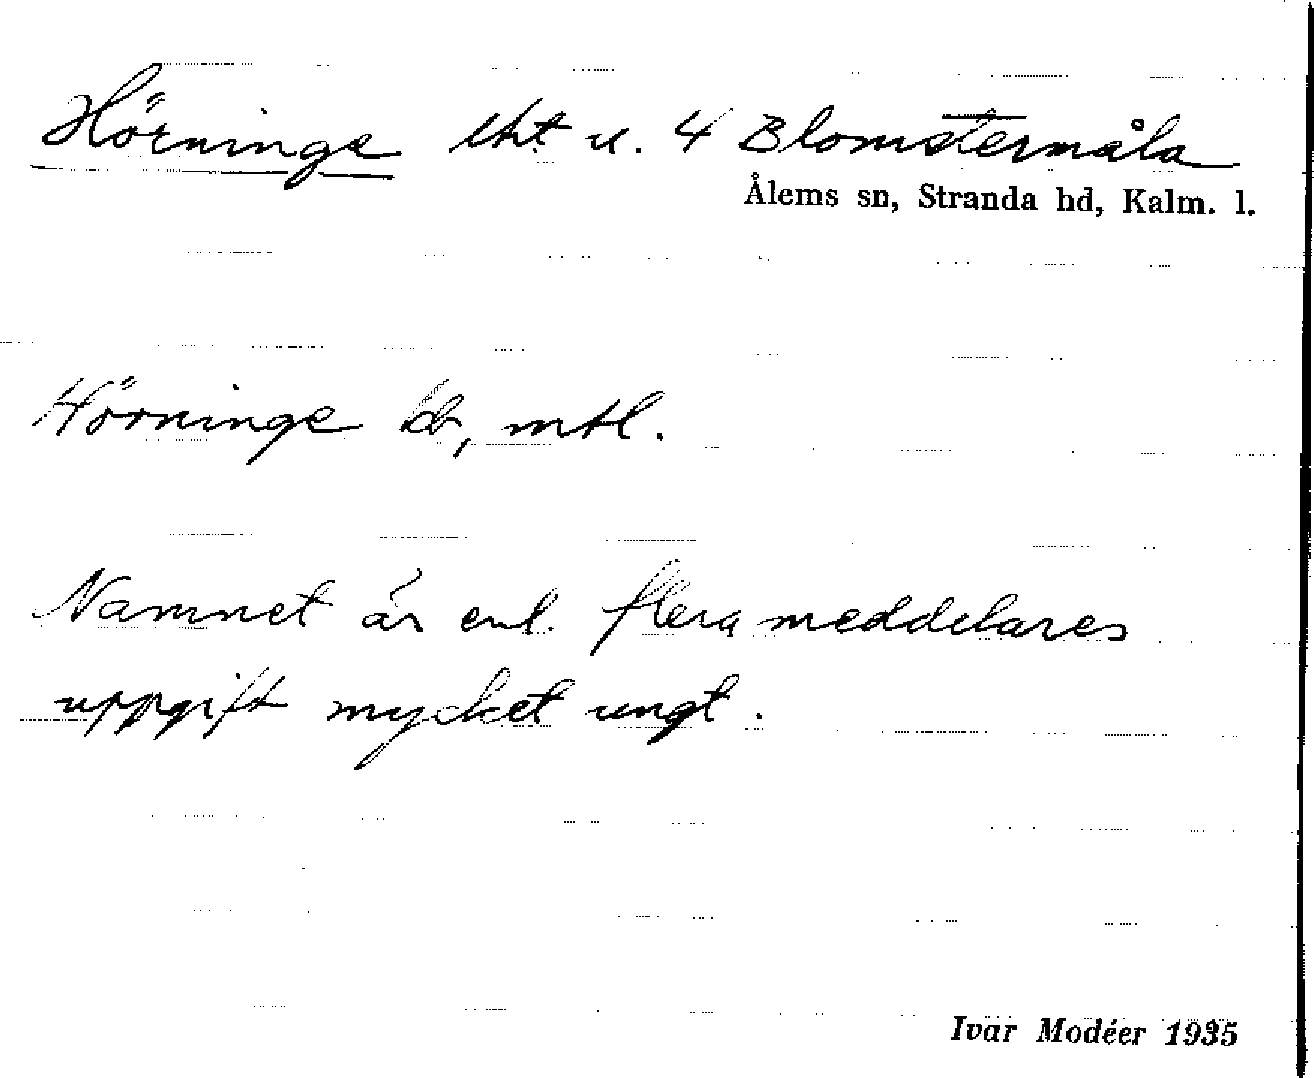 Hörninge lht u. 4 Blomstermåla
Ålems sn, Stranda hd, Kalm. l.
Hörninge kb, mtl.
Namnet är enl. flera meddelares
uppgift mycket ungt.
Ivar Modéer 1935